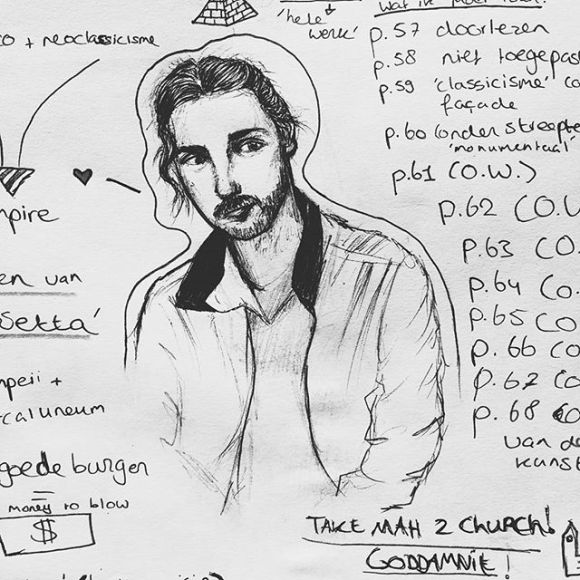 'hele
werk'
+ neoclassicisme
p.57 doorlezen
p.58 niet toegepast
p.59 'classicisme'
façade
p.60 (onderstreepte
'monumentaal'
p.61 (O.W.)
p.62 (O.
p.63 (O.
p.64 (O.
p.65 (O.
p.66 (O.
p.67 (O.
p.68
van de
kunst
mpire
en van
setta'
mpeii +
rcaluneum
goede burger
=
money to blow
$
TAKE MAH 2 CHURCH!
GODDAMNIE!